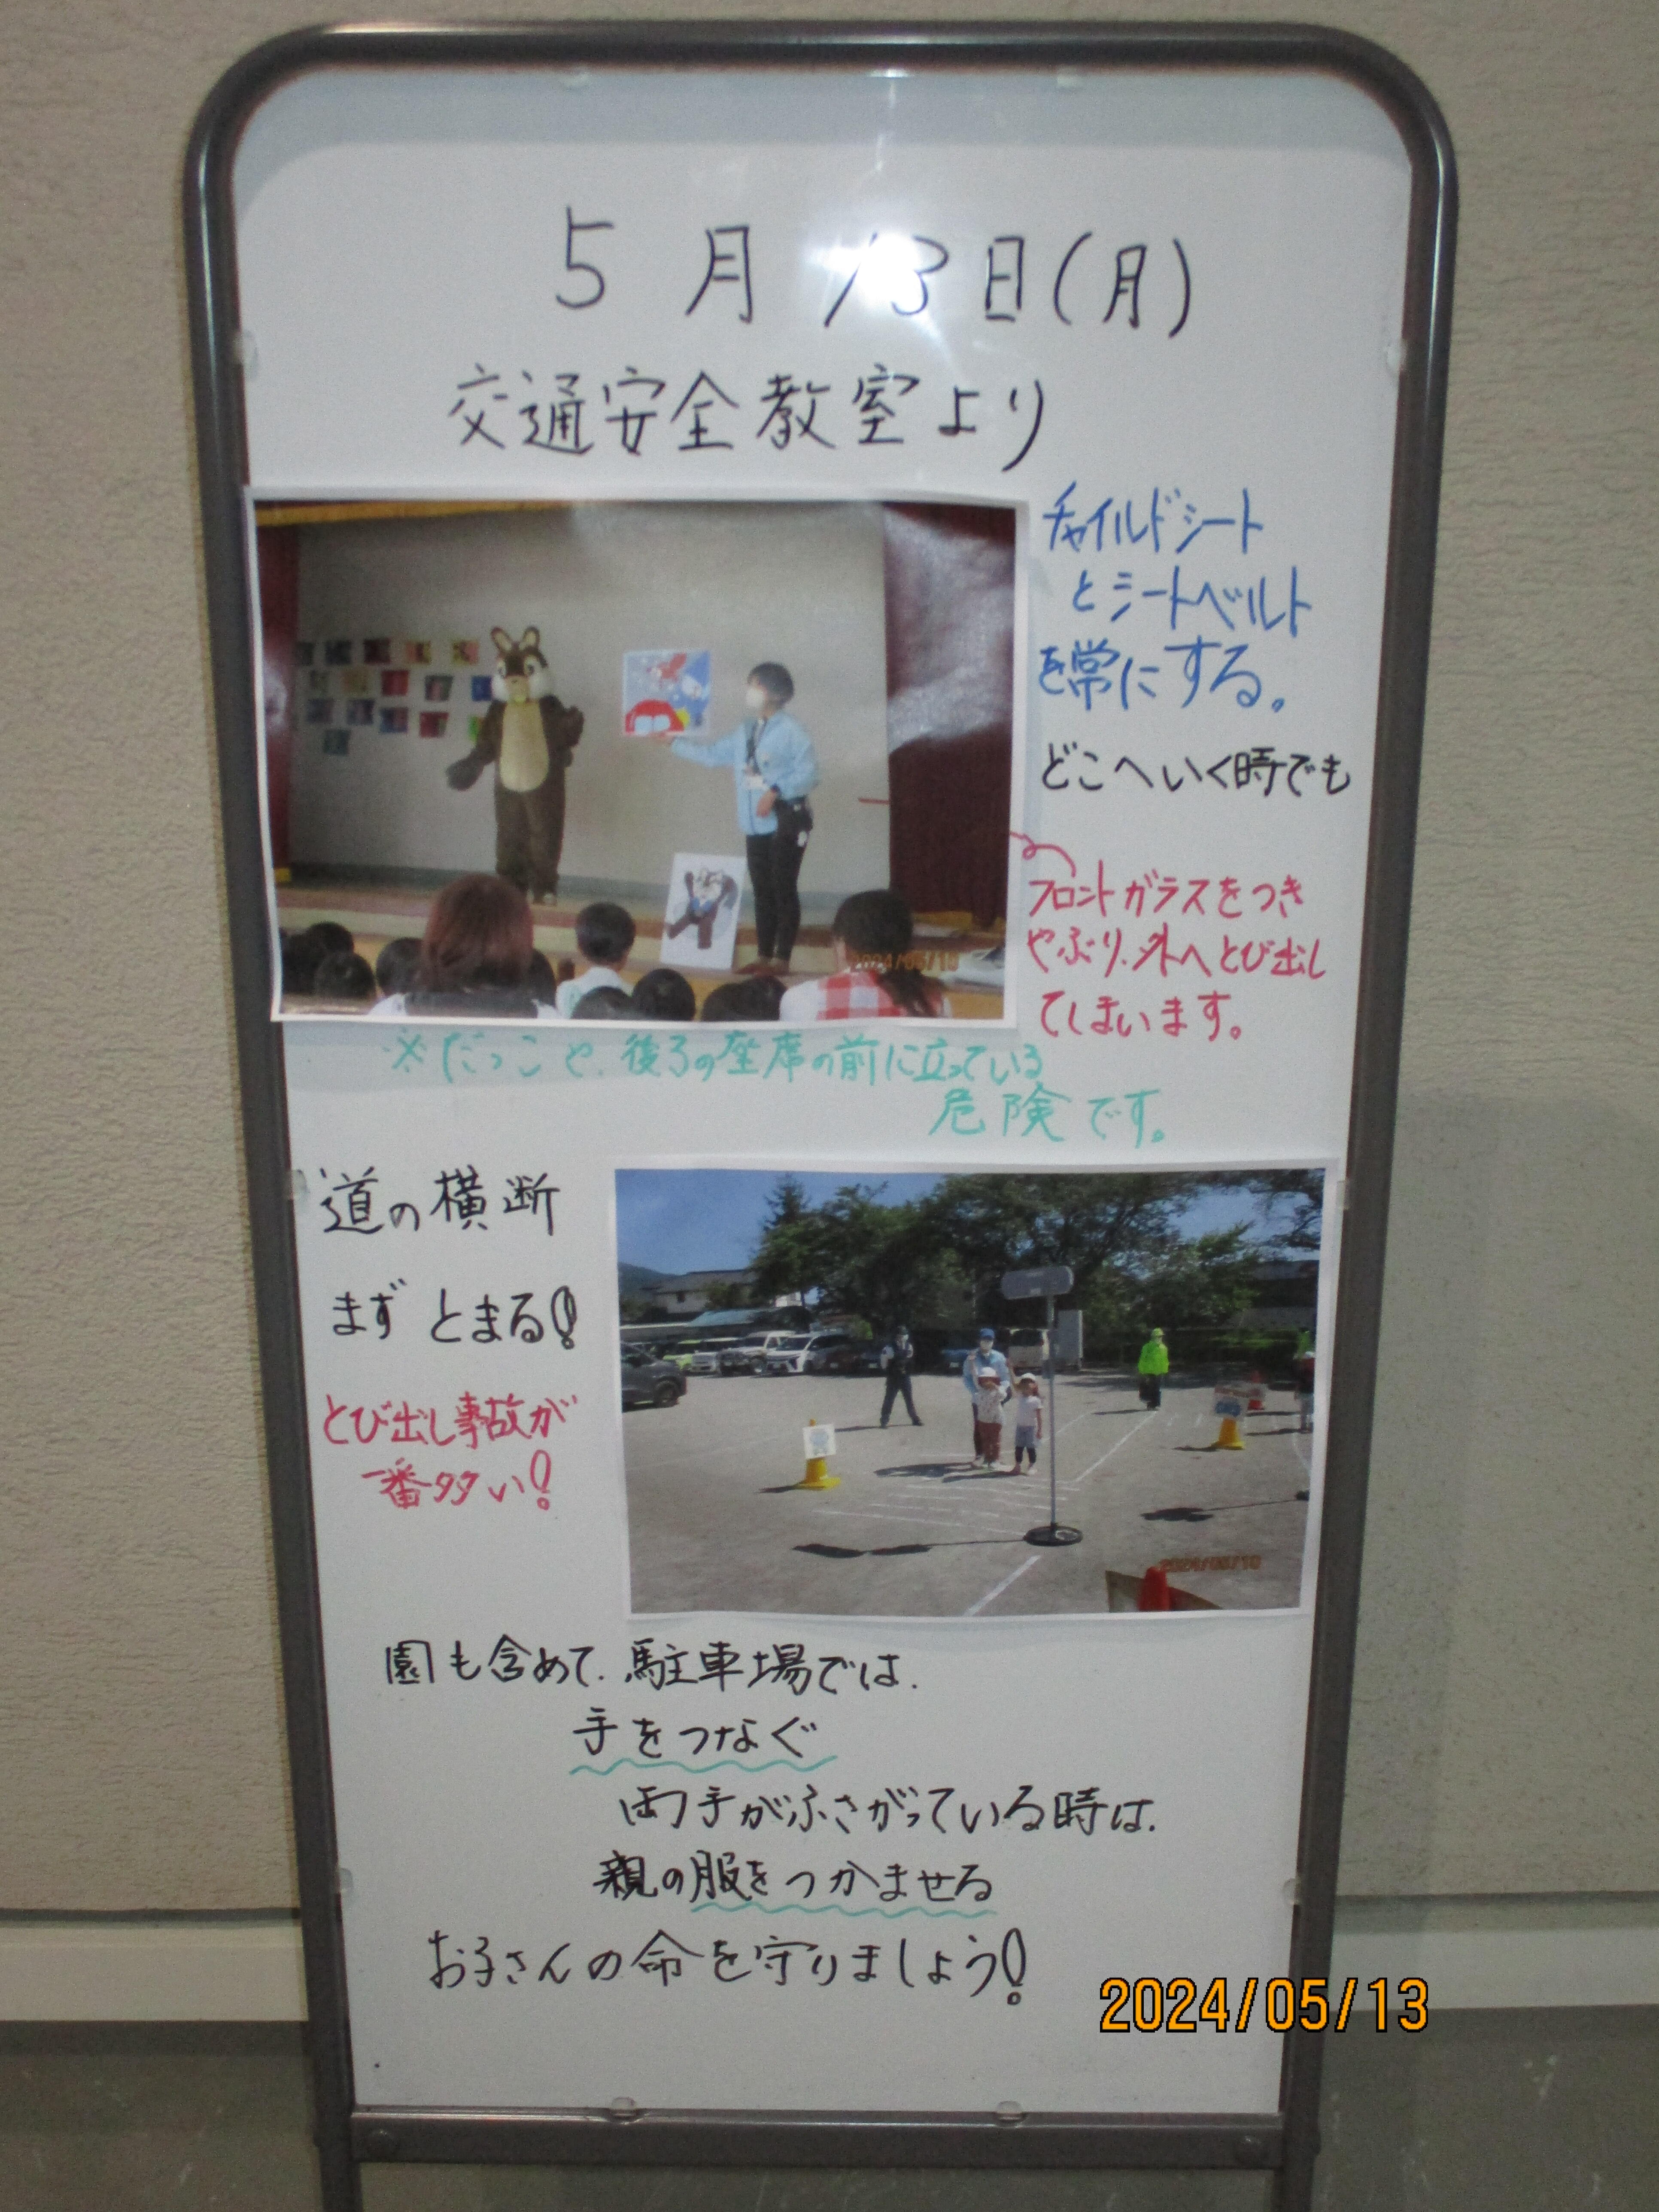 5月13日(月)
交通安全教室より
チャイルドシート
とシートベルト
を常にする。
どこへいく時でも
フロントガラスをつき
やぶり、外へとび出し
てしまいます。
2024/05/10
※だっこや、後ろの座席の前に立っている
危険です。
道の横断
まず とまる!
とび出し事故が
一番多い!
2024/05/10
園も含めて、駐車場では、
手をつなぐ
両手がふさがっている時は、
親の服をつかませる
お子さんの命を守りましょう!
2024/05/13